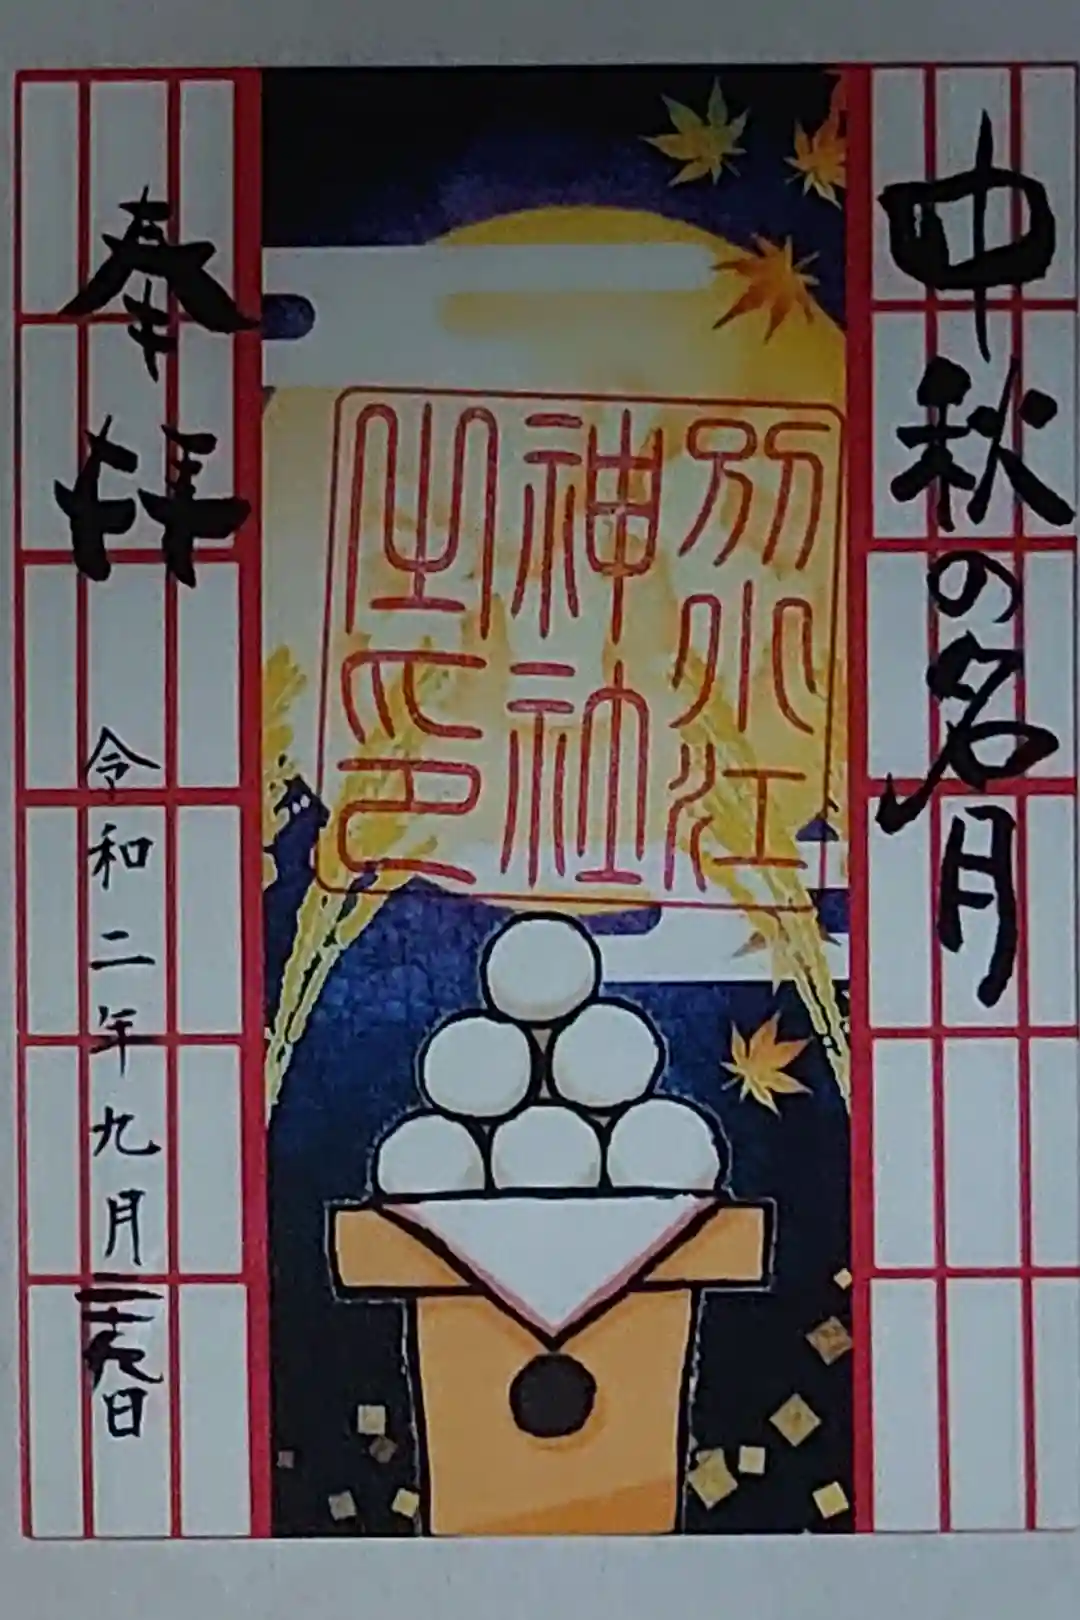 中秋の名月
別小江
神社
之印
奉拝
令和二年九月二十九日